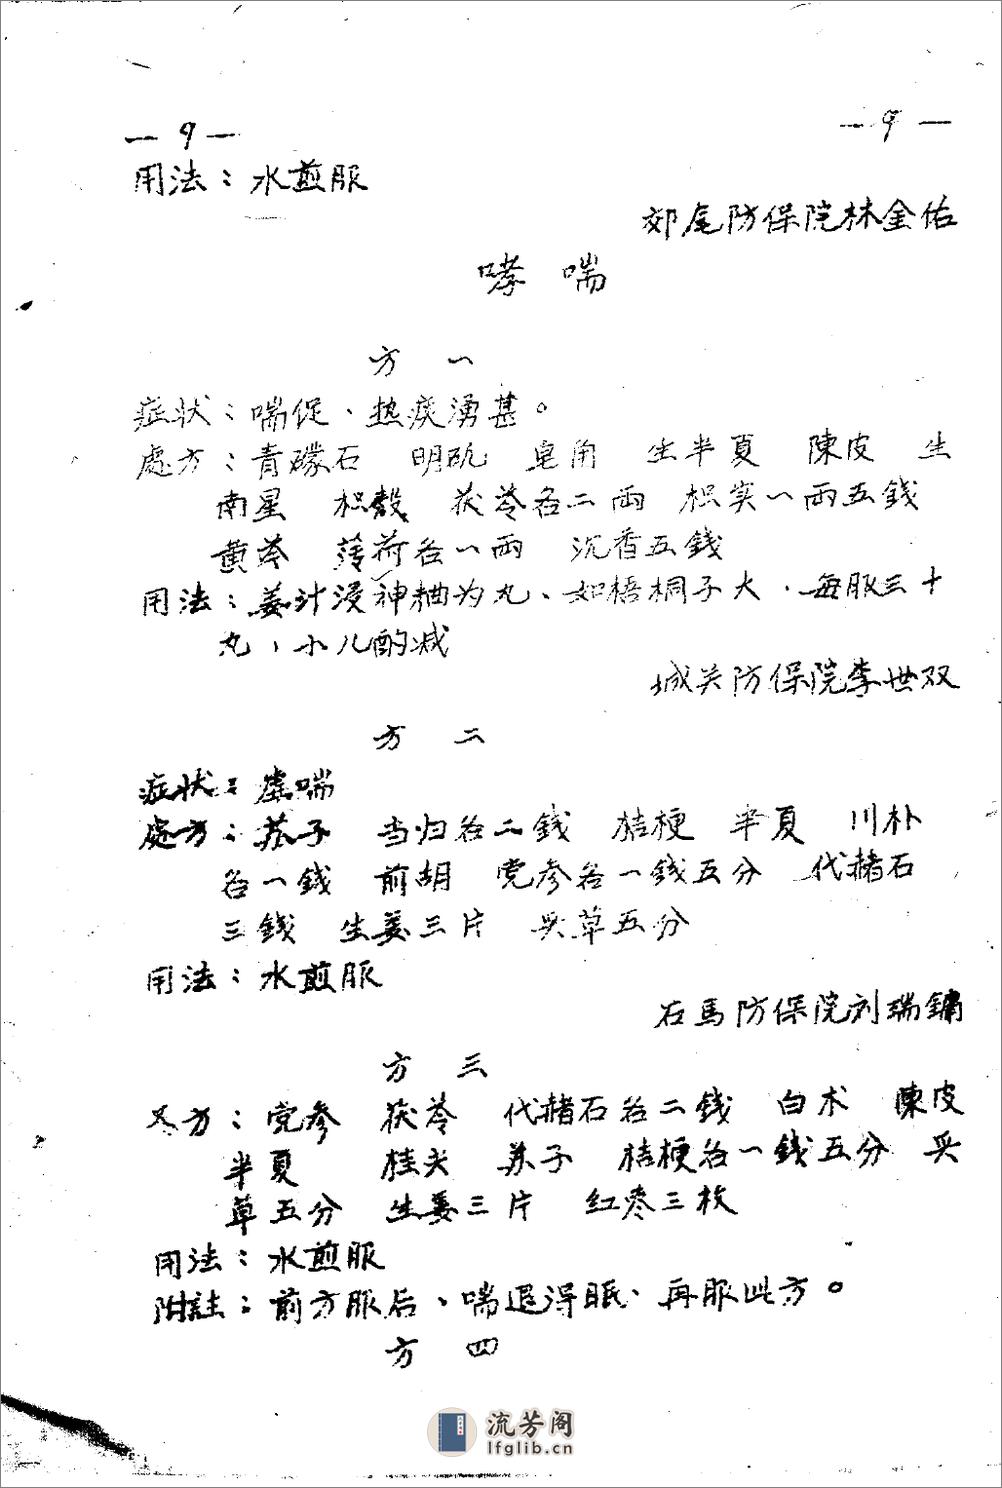 — 9 — — 9 —
用法：水煎服
郊尾防保院林金佑
哮 喘
方 一
症状：喘促、热痰湧甚。
處方：青礞石 明矾 皂角 生半夏 陳皮 生
南星 枳殼 茯苓各二兩 枳实一兩五錢
黃芩 薄荷各一兩 沉香五錢
用法：姜汁浸神粬为丸、如梧桐子大．每服三十
丸，小儿酌减
城关防保院李世双
方 二
症状：虚喘
處方：苏子 当归各二錢 桔梗 半夏 川朴
各一錢 前胡 党参各一錢五分 代赭石
三錢 生姜三片 炙草五分
用法：水煎服
石馬防保院刘瑞鏞
方 三
又方：党参 茯苓 代赭石各二錢 白术 陳皮
半夏 桂尖 苏子 桔梗各一錢五分 炙
草五分 生姜三片 红枣三枚
用法：水煎服
附註：前方服后、喘退得眠、再服此方。
方 四
流芳阁
lfglib.cn